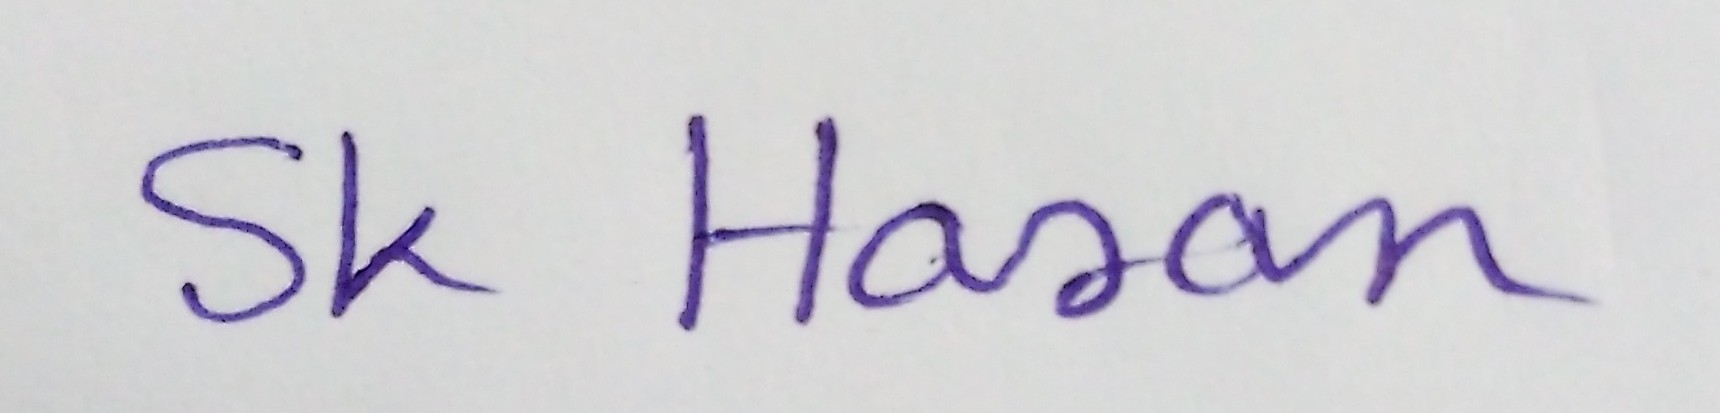 Sk Hasan